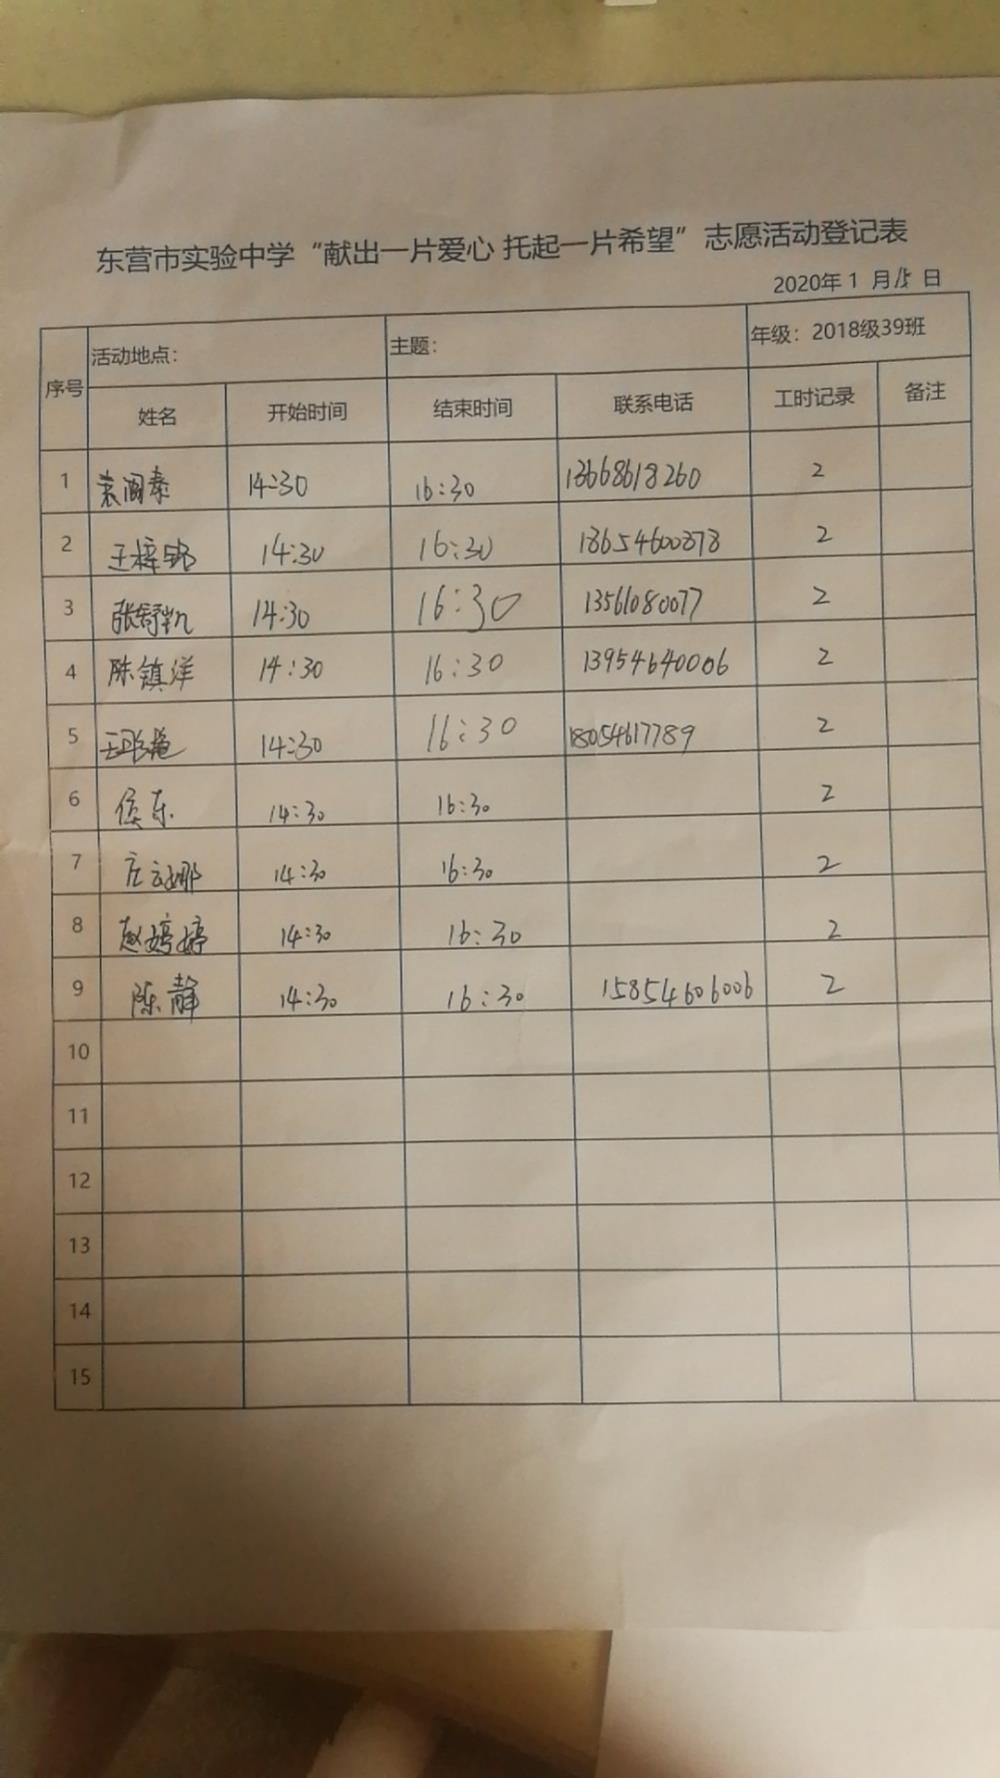 东营市实验中学“献出一片爱心 托起一片希望”志愿活动登记表
2020年1月15日
序号 活动地点： 主题： 年级：2018级39班
姓名 开始时间 结束时间 联系电话 工时记录 备注
1 袁闻泰 14:30 16:30 13668618260 2
2 王梓铭 14:30 16:30 2
3 张舒凯 14:30 16:30 13561080077 2
4 陈镇洋 14:30 16:30 13954640006 2
5 14:30 16:30 18054617789 2
6 侯东 14:30 16:30 2
7 庄云娜 14:30 16:30 2
8 赵婷婷 14:30 16:30 2
9 陈静 14:30 16:30 15854606006 2
10
11
12
13
14
15